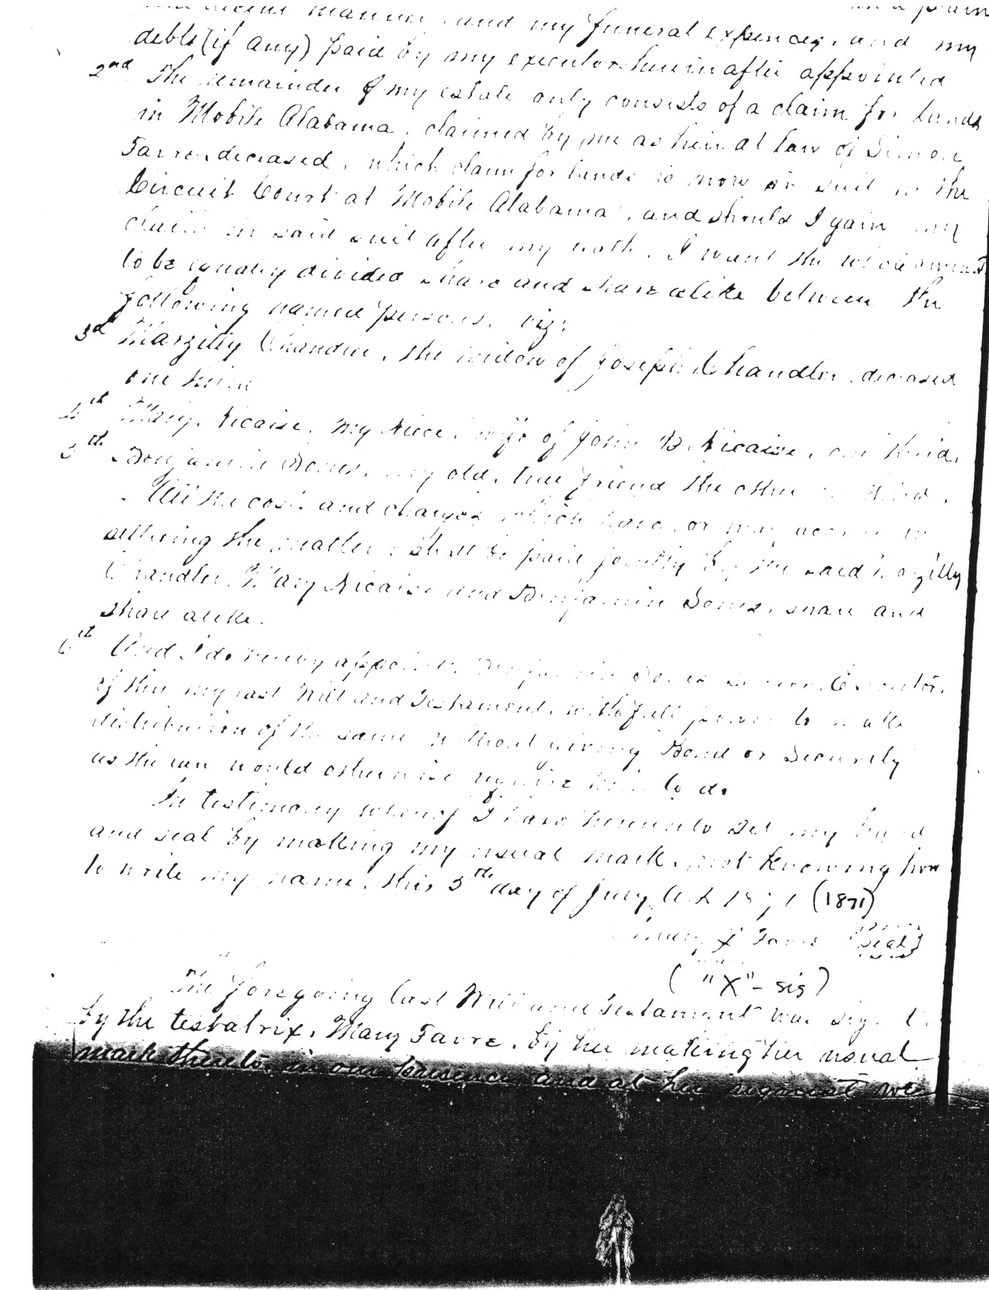 decent manner, and my funeral expences, and my
debts (if any) paid by my executor hereinafter appointed
2nd The remainder of my estate only consists of a claim for lands
in Mobile Alabama, claimed by me as heir at law of Simon
Favre, deceased, which claim for lands is now in suit in the
Circuit Court at Mobile Alabama, and should I gain my
claim in said suit after my death, I want the whole amount
to be equally divided share and share alike between the
following named persons, viz:
3d Marzilly Chandler, the widow of Joseph Chandler, deceased
one third
4th Mary Nicaise, my niece, wife of John B. Nicaise, one third.
5th Benjamin my old, true friend the other third.
All the costs and charges which have, or may accrue in
settling the matter, shall be paid jointly by the said Marzilly
Chandler, Mary Nicaise and Benjamin share and
share alike.
6th And I do hereby appoint Benjamin Executor,
of this my last Will and Testament, with full power to make
distribution of the same without giving Bond or Security
as the law would otherwise require him to do
In testimony whereof I have hereunto set my hand
and seal by making my usual mark, not knowing how
to write my name, this 5th day of July A.D. 1871 (1871)
Mary X Favre (seal)
("X" - sig)
The foregoing last Will and Testament was signed
by the testatrix, Mary Favre, by her making her usual
mark thereto, in our presence and at her request we